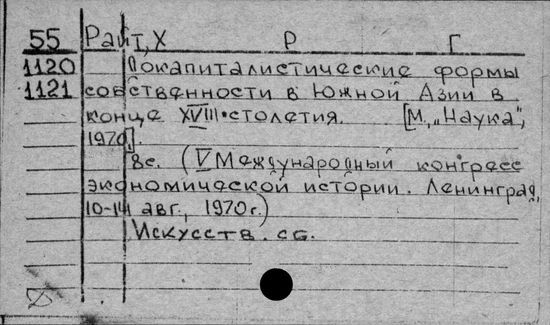 55 Райт, Х Р Г
1120 Докапиталистические формы
1121 собственности в Южной Азии в
конце XVIII столетия. [М., "Наука",
1970.]
8с. (V Международный конгресс
экономической истории. Ленинград,
10-14 авг., 1970г.)
Искусств. сб.